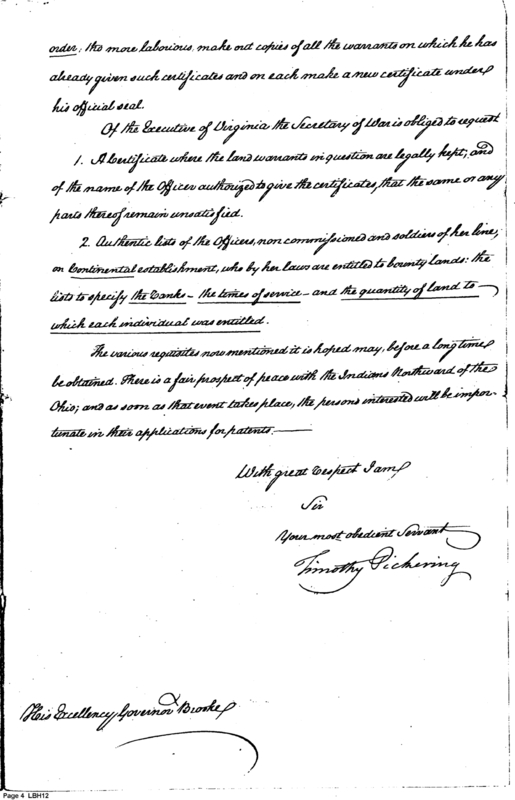 order; tho more laborious, make out copies of all the warrants on which he has
already given such certificates and on each make a new certificate under
his official seal.
Of the Executive of Virginia the Secretary of War is obliged to request
1. A Certificate where the land warrants in question are legally kept; and
of the name of the Officer authorized to give the certificates, that the same or any
parts thereof remain unsatisfied.
2. Authentic lists of the Officers, non commissioned and soldiers of her line,
on Continental establishment, who by her laws are entitled to bounty lands: the
lists to specify the ranks - the times of service - and the quantity of land to
which each individual was entitled.
The various requisites now mentioned it is hoped may, before a long time
be obtained. There is a fair prospect of peace with the Indians Northward of the
Ohio; and as soon as that event takes place, the persons interested will be impor-
tunate in their applications for patents.
With great respect I am
Sir
Your most obedient Servant
Timothy Pickering
His Excellency Governor Brooke
Page 4 LBH12